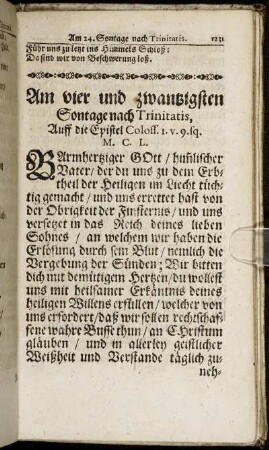 Am 24. Sontage nach Trinitatis. 1231
Führ uns zu letzt ins Himmels Schloß:
Da sind wir von Beschwerung loß.
Am vier und zwantzigsten
Sontage nach Trinitatis,
Auff die Epistel Coloss. 1. v. 9. sq.
M. C. L.
BArmhertziger GOtt / himlischer
Vater / der du uns zu dem Erb-
theil der Heiligen im Liecht tüch-
tig gemacht / und uns errettet hast von
der Obrigkeit der Finsternis / und uns
versetzet in das Reich deines lieben
Sohnes / an welchem wir haben die
Erlösung durch sein Blut / nemlich die
Vergebung der Sünden: Wir bitten
dich mit demütigem Hertzen / du wollest
uns mit heilsamer Erkäntnis deines
heiligen Willens erfüllen / welcher von
uns erfordert / daß wir sollen rechtschaf-
fene wahre Busse thun / an CHristum
gläuben / und in allerley geistlicher
Weißheit und Verstande täglich zu-
neh-